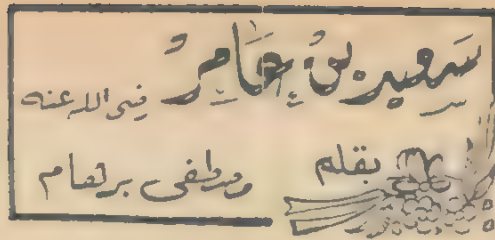 سَعِيد بنُ عَامِرُ رضي الله عنه
بقلم
مصطفى برهام